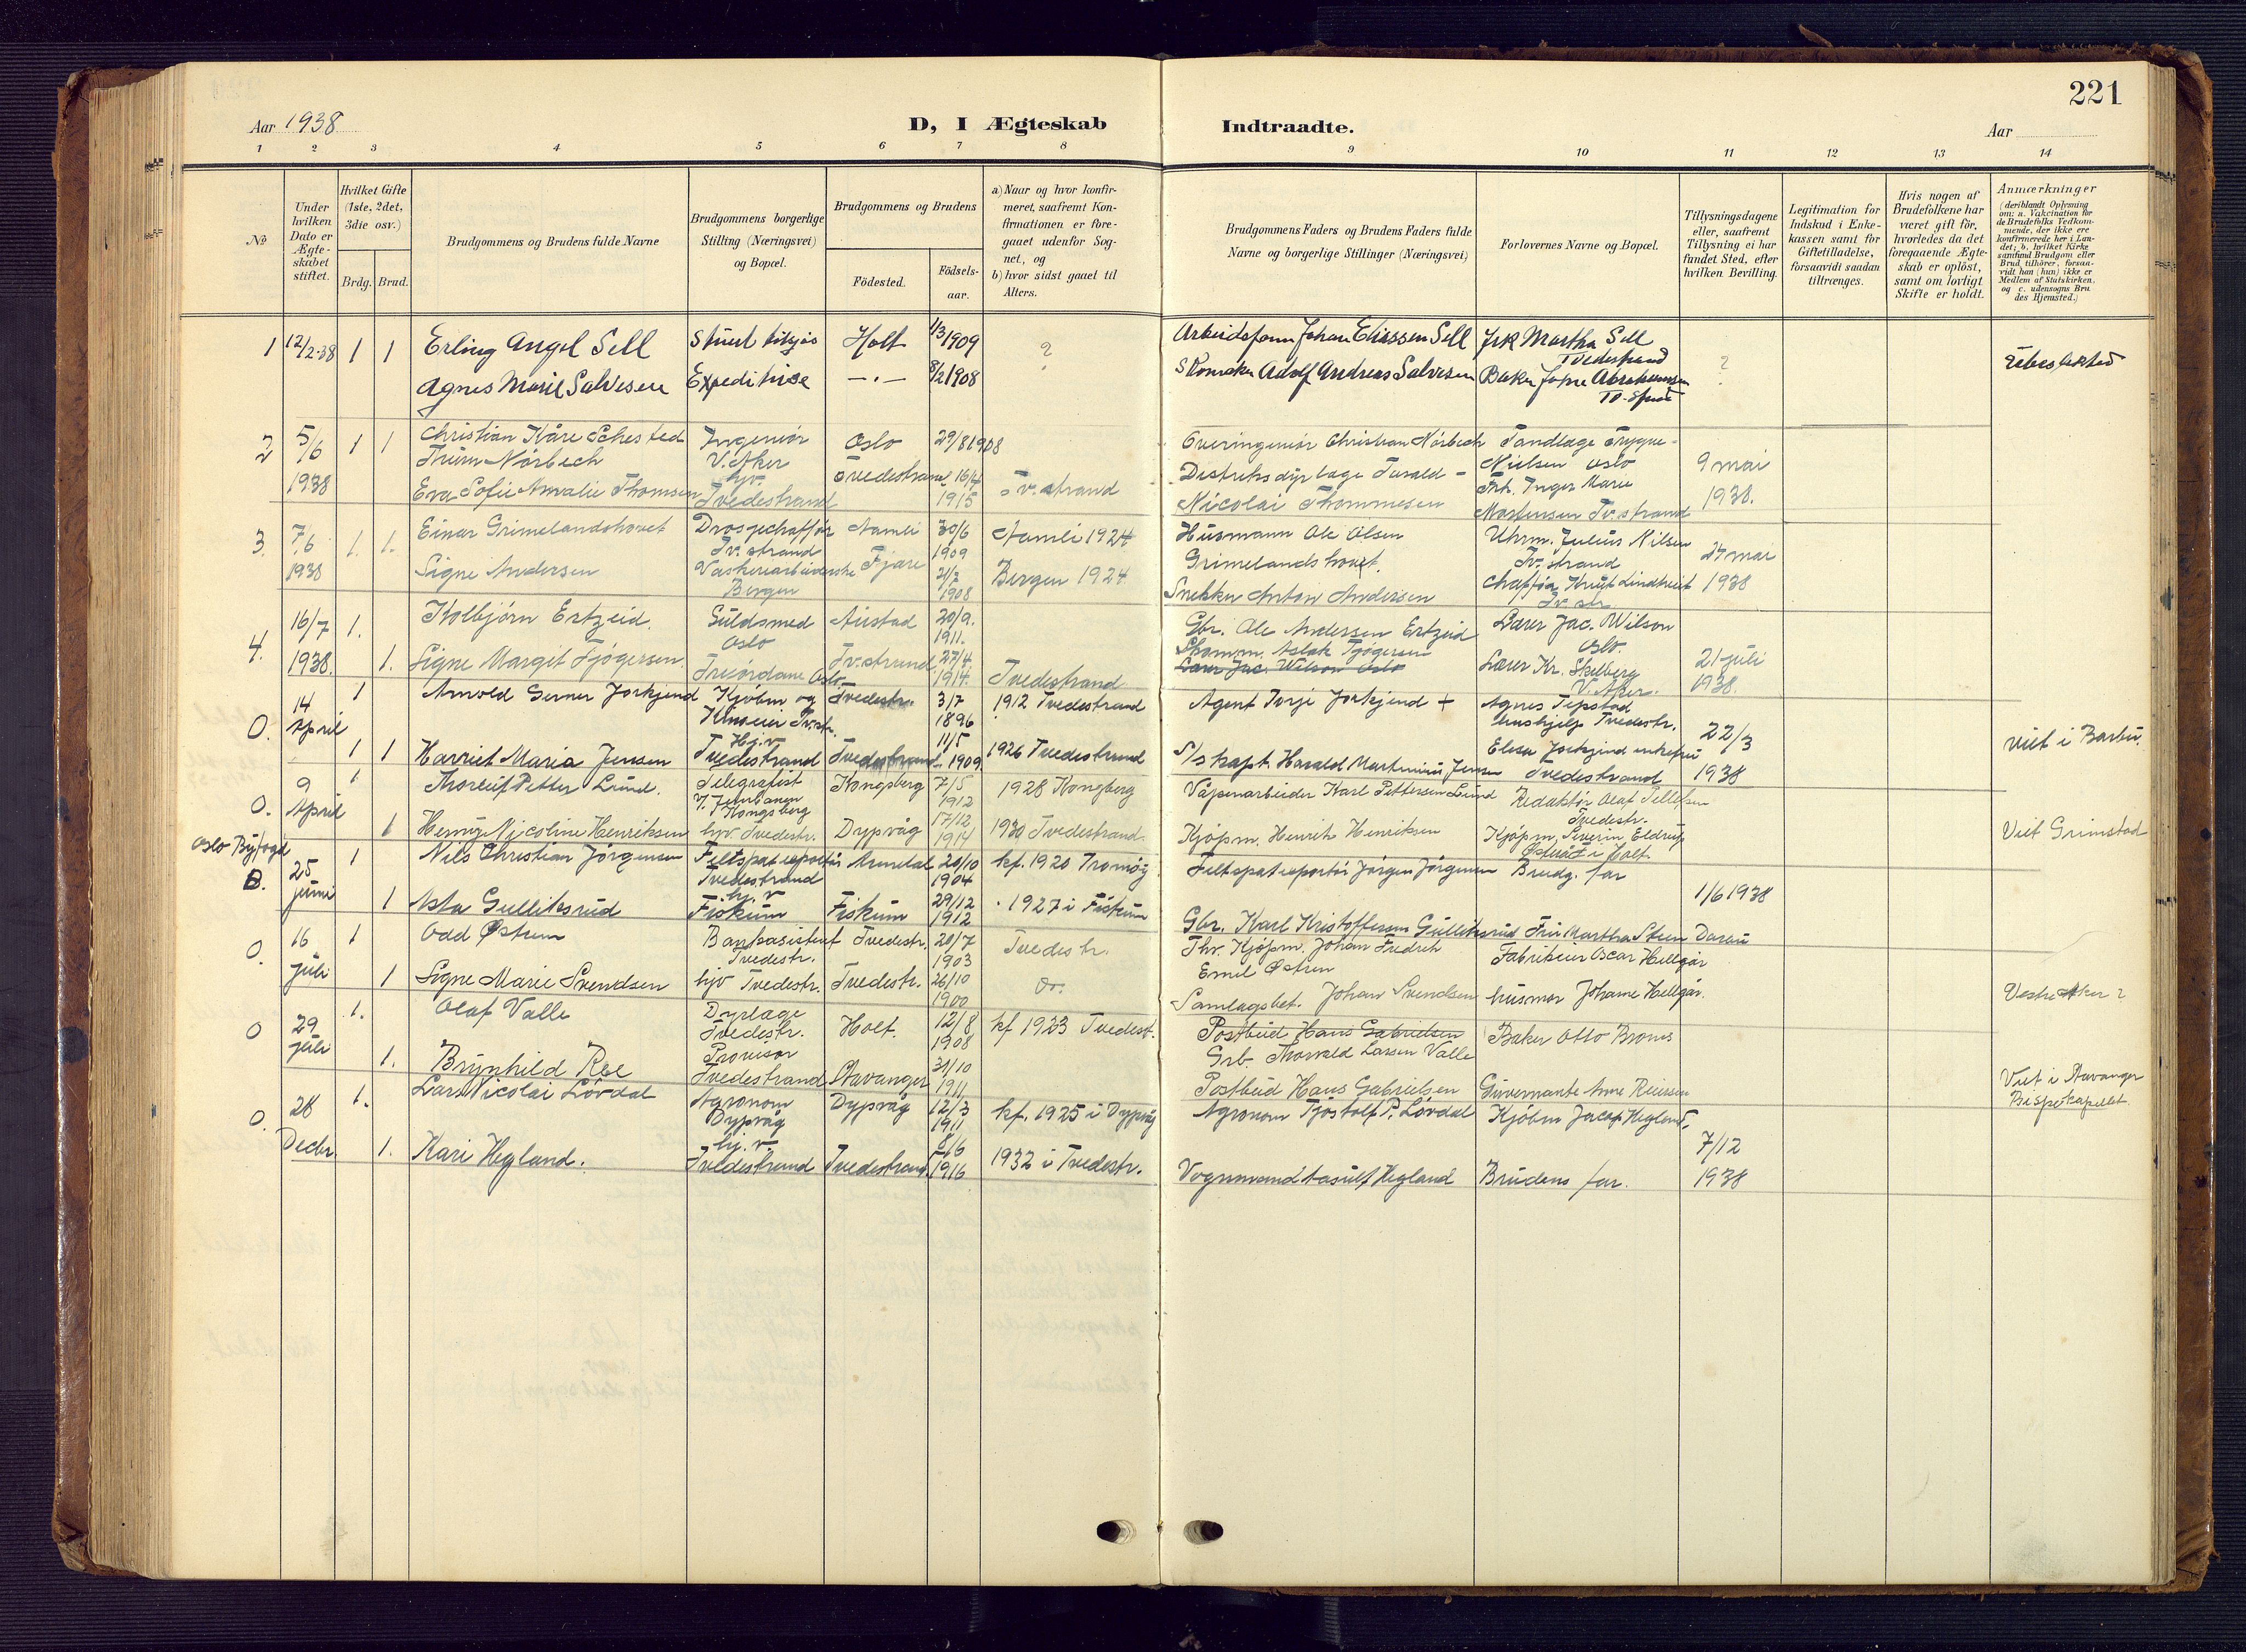 221
Aar 1938
D, I Ægteskab
Indtraadte.
Aar
1 2 3 4 5 6 7 8
9 10 11 12 13 14
No
Under
hvilken
Dato er
Ægte-
skabet
stiftet.
Hvilket Gifte
(1ste, 2det,
3die osv.)
Brdg. Brud.
Brudgommens og Brudens fulde Navne
Brudgommens borgerlige
Stilling (Næringsvei)
og Bopæl.
Brudgommens og Brudens
Fødested.
Fødsels-
aar.
a) Naar og hvor konfir-
meret, saafremt Kon-
firmationen er fore-
gaaet udenfor Sog-
net, og
b) hvor sidst gaaet til
Alters.
Brudgommens Faders og Brudens Faders fulde
Navne og borgerlige Stillinger (Næringsvei)
Forlovernes Navne og Bopæl.
Tillysningsdagene
eller, saafremt
Tillysning ei har
fundet Sted, efter
hvilken Bevilling.
Legitimation for
Indskud i Enke-
kassen samt for
Giftetilladelse,
forsaavidt saadan
tiltrænges.
Hvis nogen af
Brudefolkene har
været gift før,
hvorledes da det
foregaaende Ægte-
skab er opløst,
samt om lovligt
Skifte er holdt.
Anmærkninger
(deriblandt Oplysning
om: a. Vakcination for
de Brudefolks Vedkom-
mende, der ikke ere
konfirmerede her i Lan-
det; b. hvilket Kirke
samfund Brudgom eller
Brud tilhører, forsaa-
vidt han (hun) ikke er
Medlem af Statskirken,
og c. udensogns Bru
des Hjemsted.)
1 12/2-38 1 1 Erling Angel Sell Holt 1/3 1909 ? Johan Eliassen Sell Frk Martha Sell
Tvedestrand
Agnes Marie Salvesen Expeditrise —"— 8/2 1908 Skomaker Adolf Andreas Salvesen Baker
?
2 5/6 1938 1 1 Christian Kåre Sehested Ingeniør Oslo 29/8 1908 Overingeniør Christian Nörbech Tandlæge Trygve
Thurn Nörbech V. Aker Nielsen Oslo 9 mai
Eva Sofie Amalie Thomsen hjv. Tvedestrand Tvedestrand 16/4 1915 Tv.strand Nicolai Thommesen Frk. Inger Marie
Mortensen Tv.strand 1938.
3. 7/6 1938 1. 1. Einar Grimelandshovet Tv.strand Aamli 30/6 1909 Aamli 1924 Husmann Ole Olsen
Grimelandshovet. Uhrm. Julius Nilsen
Tv.strand 24 mai
Signe Andersen Bergen Fjære 2/7 1908 Bergen 1924 Snekker Anton Andersen Knut Lindtveit
Tv.str. 1938
4. 16/7 1938. 1. Kolbjörn Ertzeid. Guldsmed Oslo 20/9. 1911. Gbr. Ole Andersen Ertzeid Lærer Jac. Wilson
Oslo.
1. Signe Margit Tjögersen. Oslo Tv.strand 27/4. 1914. Tvedestrand Aslak Tjögersen
Lærer Jac. Wilson Oslo Lærer Kr. Skelberg
V. Aker. 21 juli 1938.
O. 14 April 1 Arnold Gerner Jorkjend Kjöbm og Tvedestr. 3/7 1896 1912 Tvedestrand Agent Torje Jorkjend + Agnes Tepstad
hushjelp Tvedestr. 22/3
1 1 Harriet Maria Jensen Hj.v Tvedestrand Tvedestrand 11/5 1909. 1926 Tvedestrand S/s kapt. Harald Martinius Jensen Elisa Jorkjend enkefru
Tvedestrand 1938 viet i Barbu.
O. 9 April 1 Thorleif Petter Lund. Telegrafist
Kongsberg Kongsberg 7/5 1912 1928 Kongberg Våpenarbeider Karl Pettersen Lund Redaktör Olaf Tellefsen
Tvedestr.
1 Henny Nicoline Henriksen hjv. Tvedestr. Dypvåg 17/12 1914 1930 Tvedestrand. Kjöpm. Henrik Henriksen Kjöpm. Severin Eldrup
i Holt. Viet Grimstad
Oslo Byfogd
O. 25 juni 1 Nils Christian Jörgensen Tvedestrand Arendal 20/10 1904 kf. 1920 Tromöy Feltspateksportör Jörgen Jörgensen Brudg. far
1/6 1938
1 Asta Gulliksrud hj.v Fiskum Fiskum 29/12 1912 1927 i Fiskum Gbr. Karl Kristoffersen Gulliksrud Fru Martha Steen
O. 16 juli 1 Odd Østren Bankasistent
Tvedestr. Tvedestr. 20/7 1903 Tvedestr. Kjöpm. Johan Fredrik
Emil Østren Fabrikeier Oscar Hellgår
1 Signe Marie Svendsen hjv Tvedestr. Tvedestr. 26/10 1900 Do. Samlagsbet. Johan Svendsen husmor Johanne Hellgår. Vestre Aker ?
O 29 juli 1. Olaf Valle Dyrlæge
Tvedestr. Holt. 12/8 1908 kf 1923 Tvedest. Postbud Hans Gabrielsen
Grb. Thorvald Larsen Valle Baker Otto Brones
1. Brynhild Ree Provisor
Tvedestrand Stavanger 31/10 1911 Postbud Hans Gabrielsen Guvernante Anne Viet i Stavanger
Bispekapellet.
O. 28 Decbr. 1. Lars Nicolai Lövdal Agronom
Dypvåg Dypvåg 12/3 1911 kf. 1925 i Dypvåg Agronom Tjostolf P. Lövdal Kjöbm Jacop Hegland,
7/12
1. Kari Hegland. hj.v. Tvedestrand Tvedestrand. 8/6 1916 1932 i Tvedestr. Vognmand Hegland Brudens far. 1938